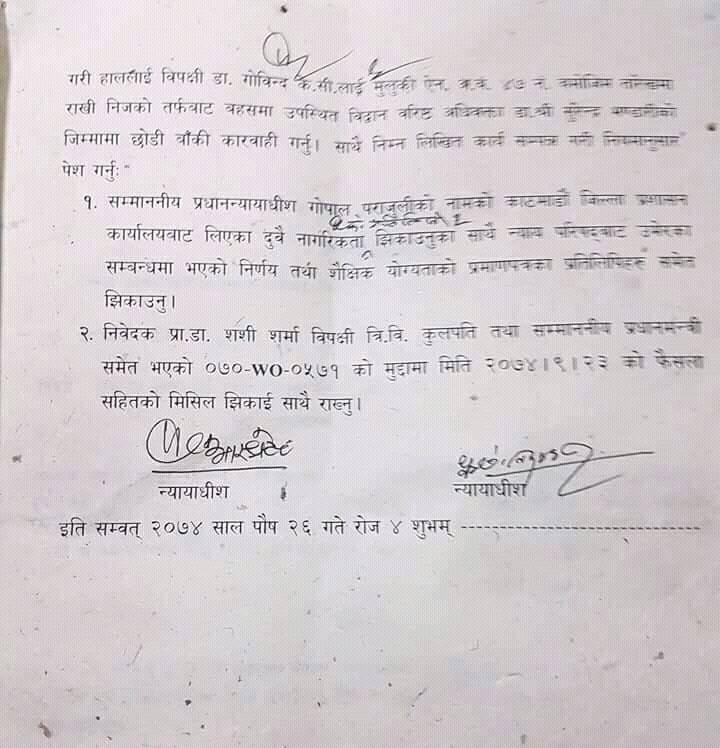 गरी हाललाई विपक्षी डा. गोविन्द के.सी.लाई मुलुकी ऐन, अ.बं. ४७ नं. बमोजिम तारेखमा
राखी निजको तर्फबाट बहसमा उपस्थित विद्वान वरिष्ठ अधिवक्ता डा.श्री सुरेन्द्र भण्डारीको
जिम्मामा छोडी बाँकी कारवाही गर्नु। साथै निम्न लिखित कार्य सम्पन्न गरी नियमानुसार
पेश गर्नुः"
१. सम्माननीय प्रधानन्यायाधीश गोपाल पराजुलीको नामको काठमाडौं जिल्ला प्रशासन
कार्यालयबाट लिएका दुवै नागरिकता झिकाउनुका साथै न्याय परिषद्बाट उमेरका
सम्बन्धमा भएको निर्णय तथा शैक्षिक योग्यताको प्रमाणपत्रका प्रतिलिपिहरु समेत
झिकाउनु।
२. निवेदक प्रा.डा. शशी शर्मा विपक्षी त्रि.वि. कुलपति तथा सम्माननीय प्रधानमन्त्री
समेत भएको ०७०-WO-०५७१ को मुद्दामा मिति २०७४।९।२३ को फैसला
सहितको मिसिल झिकाई साथै राख्नु।
न्यायाधीश न्यायाधीश
इति सम्वत् २०७४ साल पौष २६ गते रोज ४ शुभम् ------------------------------